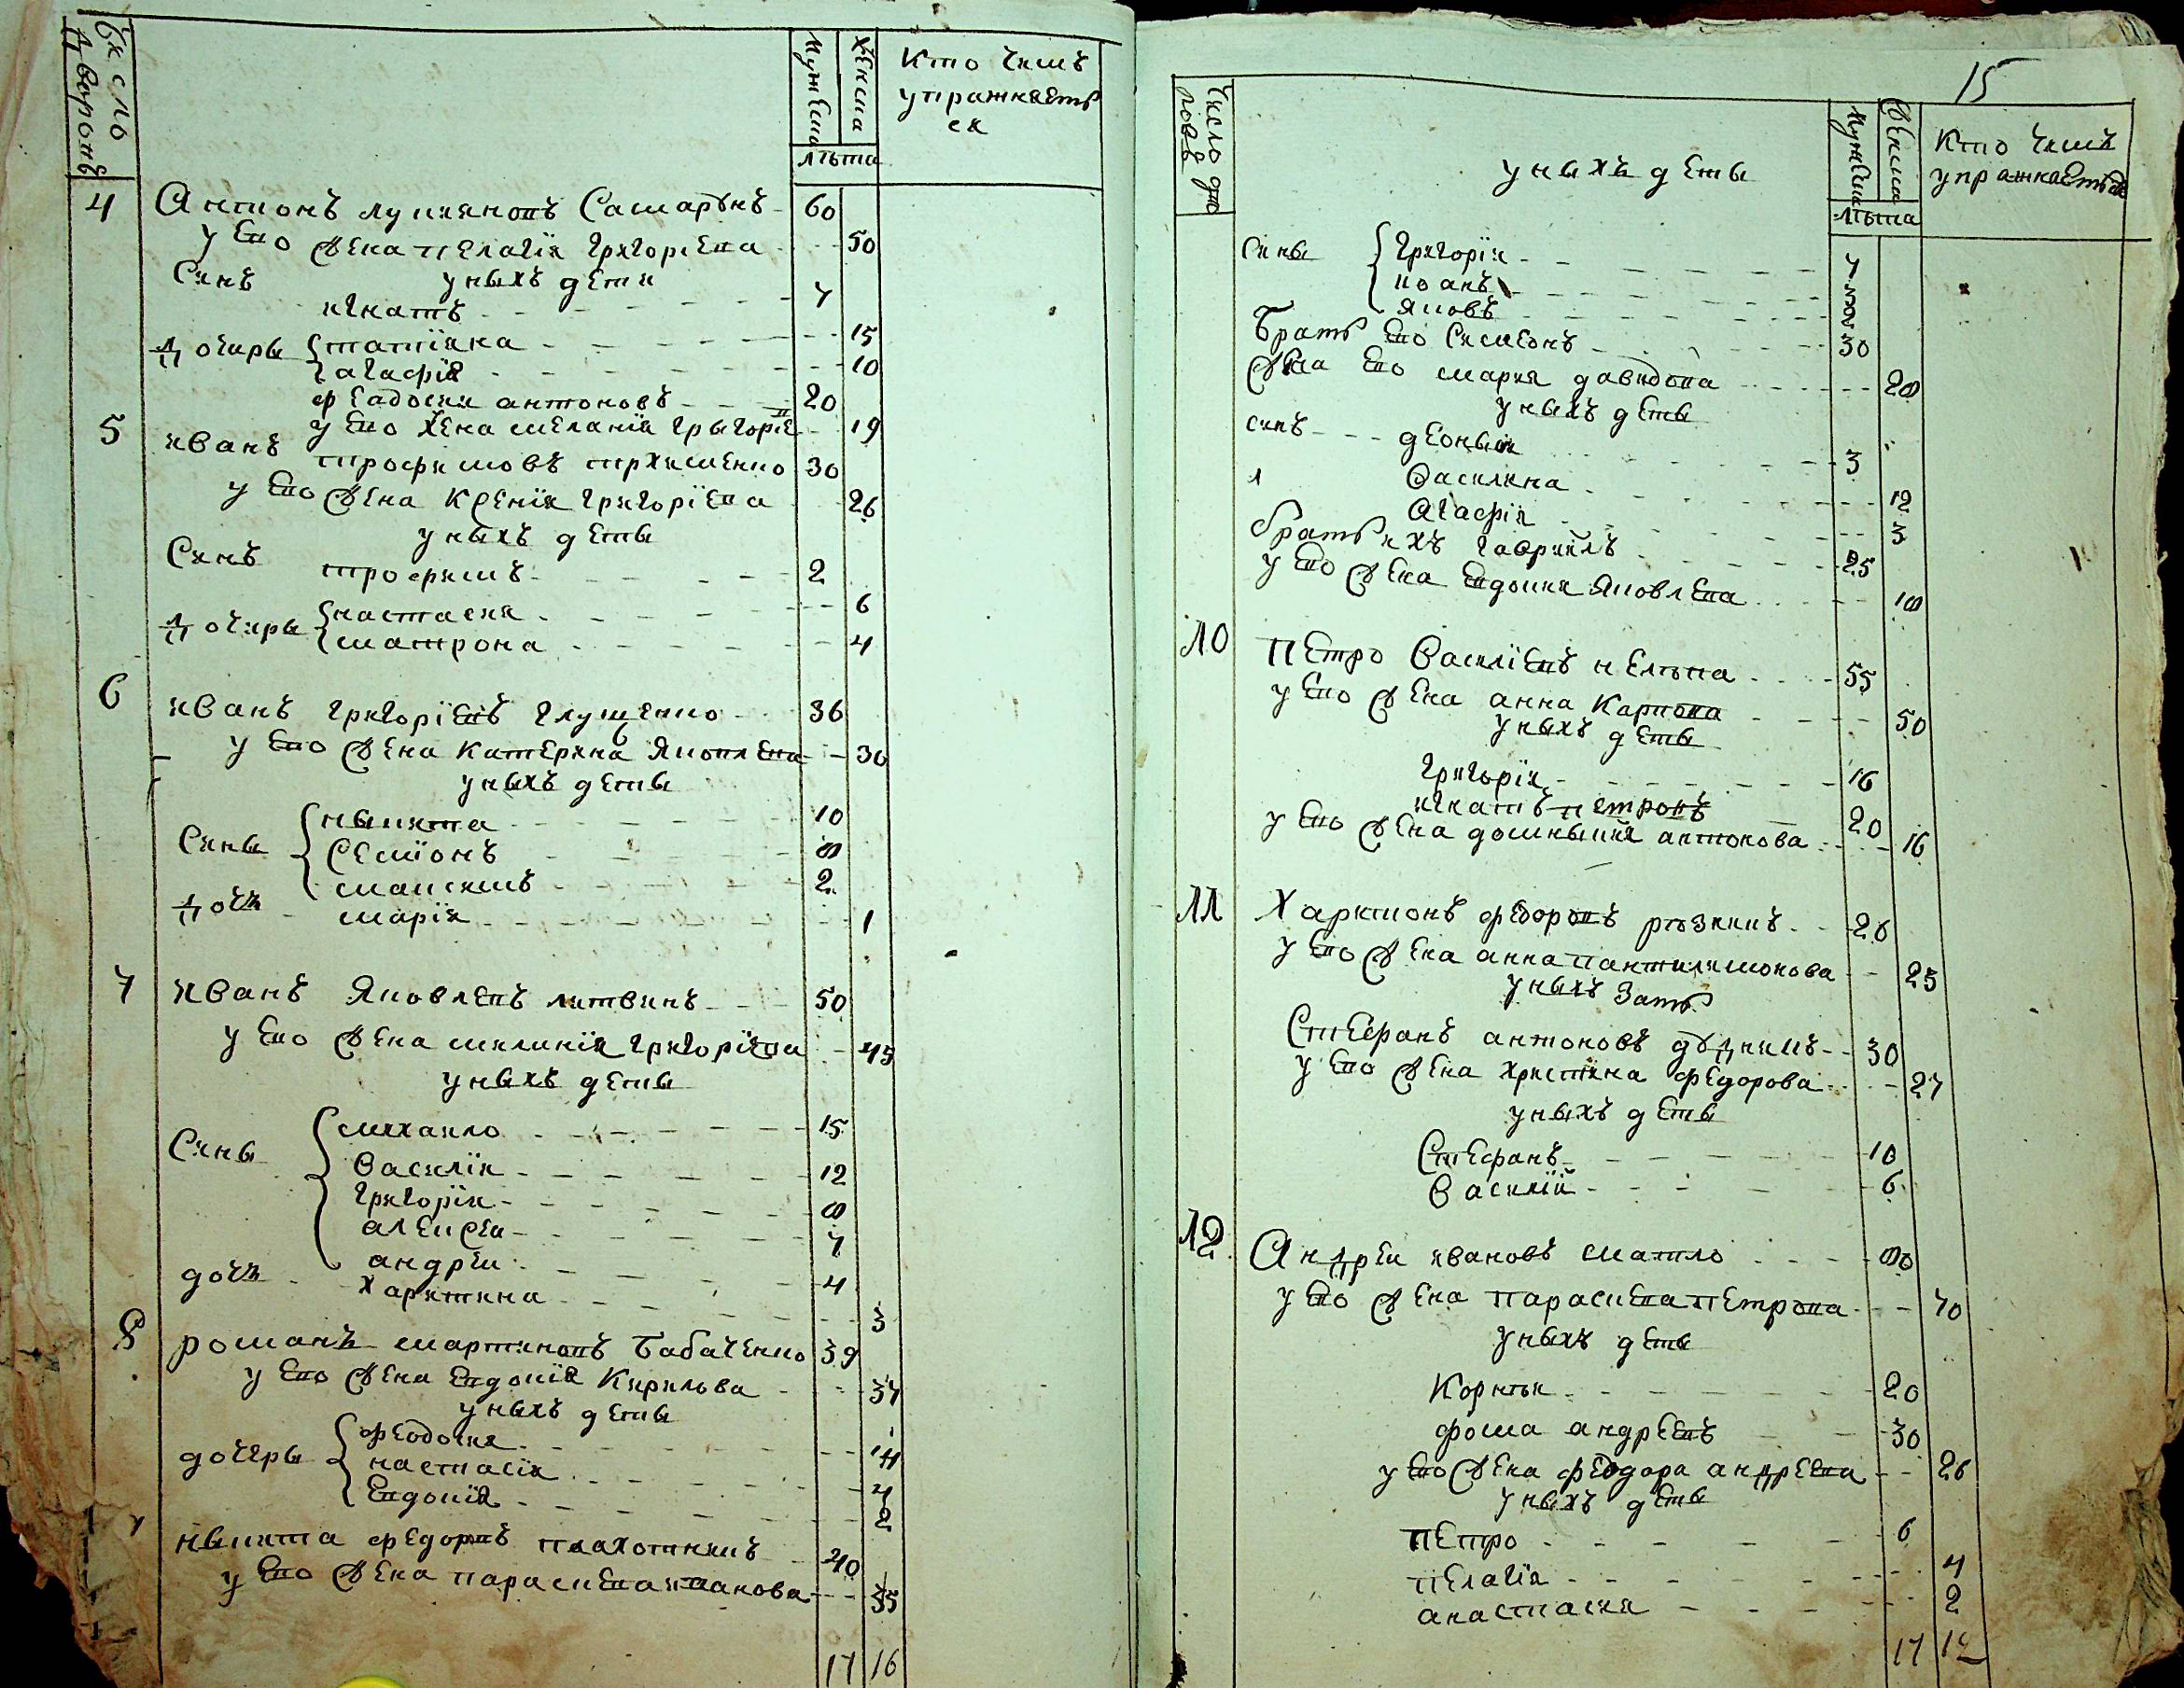 Число дворовъ
Мужеска
Женска
лѣта
Кто чемъ упражняеться
4 Антонъ лукяновъ Самарунъ 60
у его жена пелагія григориева 50
Синъ у ныхъ дети
игнатъ 7
Дочиры татіяна 15
агафія 10
феадосия антоновъ 20
у его жена меланія григоріе 19
5 иванъ трофимовъ 30
у его жена Ксенія григоріева 26
у ныхъ деты
Синъ трофимъ 2
Дочиры настасия 6
матрона 4
6 иванъ григоріевъ глущенко 36
у его жена Катерина яковлева 30
у ныхъ деты
Сины ныкита 10
Семіонъ 8
максимъ 2
Дочъ марія 1
7 иванъ яковлевъ литвинъ 50
у его жена миланія григоріева 45
у ныхъ деты
Сины михаило 15
Василіи 12
григоріи 8
алексеи 7
андреи 4
дочъ Харитина 3
8 романъ мартиновъ Бабаченко 39
у его жена евдокія Кирилова 37
у ныхъ деты
дочеры феодосия 14
настасія 4
Евдокія 2
ныкита федоровъ плахотникъ 40
у его жена параскева иванова 35
17 16
15
Число дворовъ
у ныхъ деты
Мужеска
Женска
лѣта
Кто чемъ упражняеться
Сины григоріи 7
иоанъ 3
яковъ 2
братъ его Симеонъ 30
жена его мария давидова 28
у ныхъ деты
синъ деоныси 3
Василина 12
Агафия 3
братъ ихъ гавриилъ 25
у его жена евдокия яковлева 18
10 петро Василіевъ 55
у его жена анна Карпова 50
у ныхъ деты
григоріи 16
игнатъ петровъ 20
у его жена домныкия антонова 16
11 Харитонъ федоровъ рѣзникъ 26
у его жена анна пантилимонова 25
у ныхъ зять
Стефанъ антоновъ дудникъ 30
у его жена христина федорова 27
у ныхъ деты
Стефанъ 10
Василій 6
12 Андреи ивановъ матло 80
у его жена параскева петрова 70
у ныхъ деты
Корнѣи 20
фома андреевъ 30
у его жена феодора андреева 26
у ныхъ деты
петро 6
пелагія 4
анастасия 2
17 12